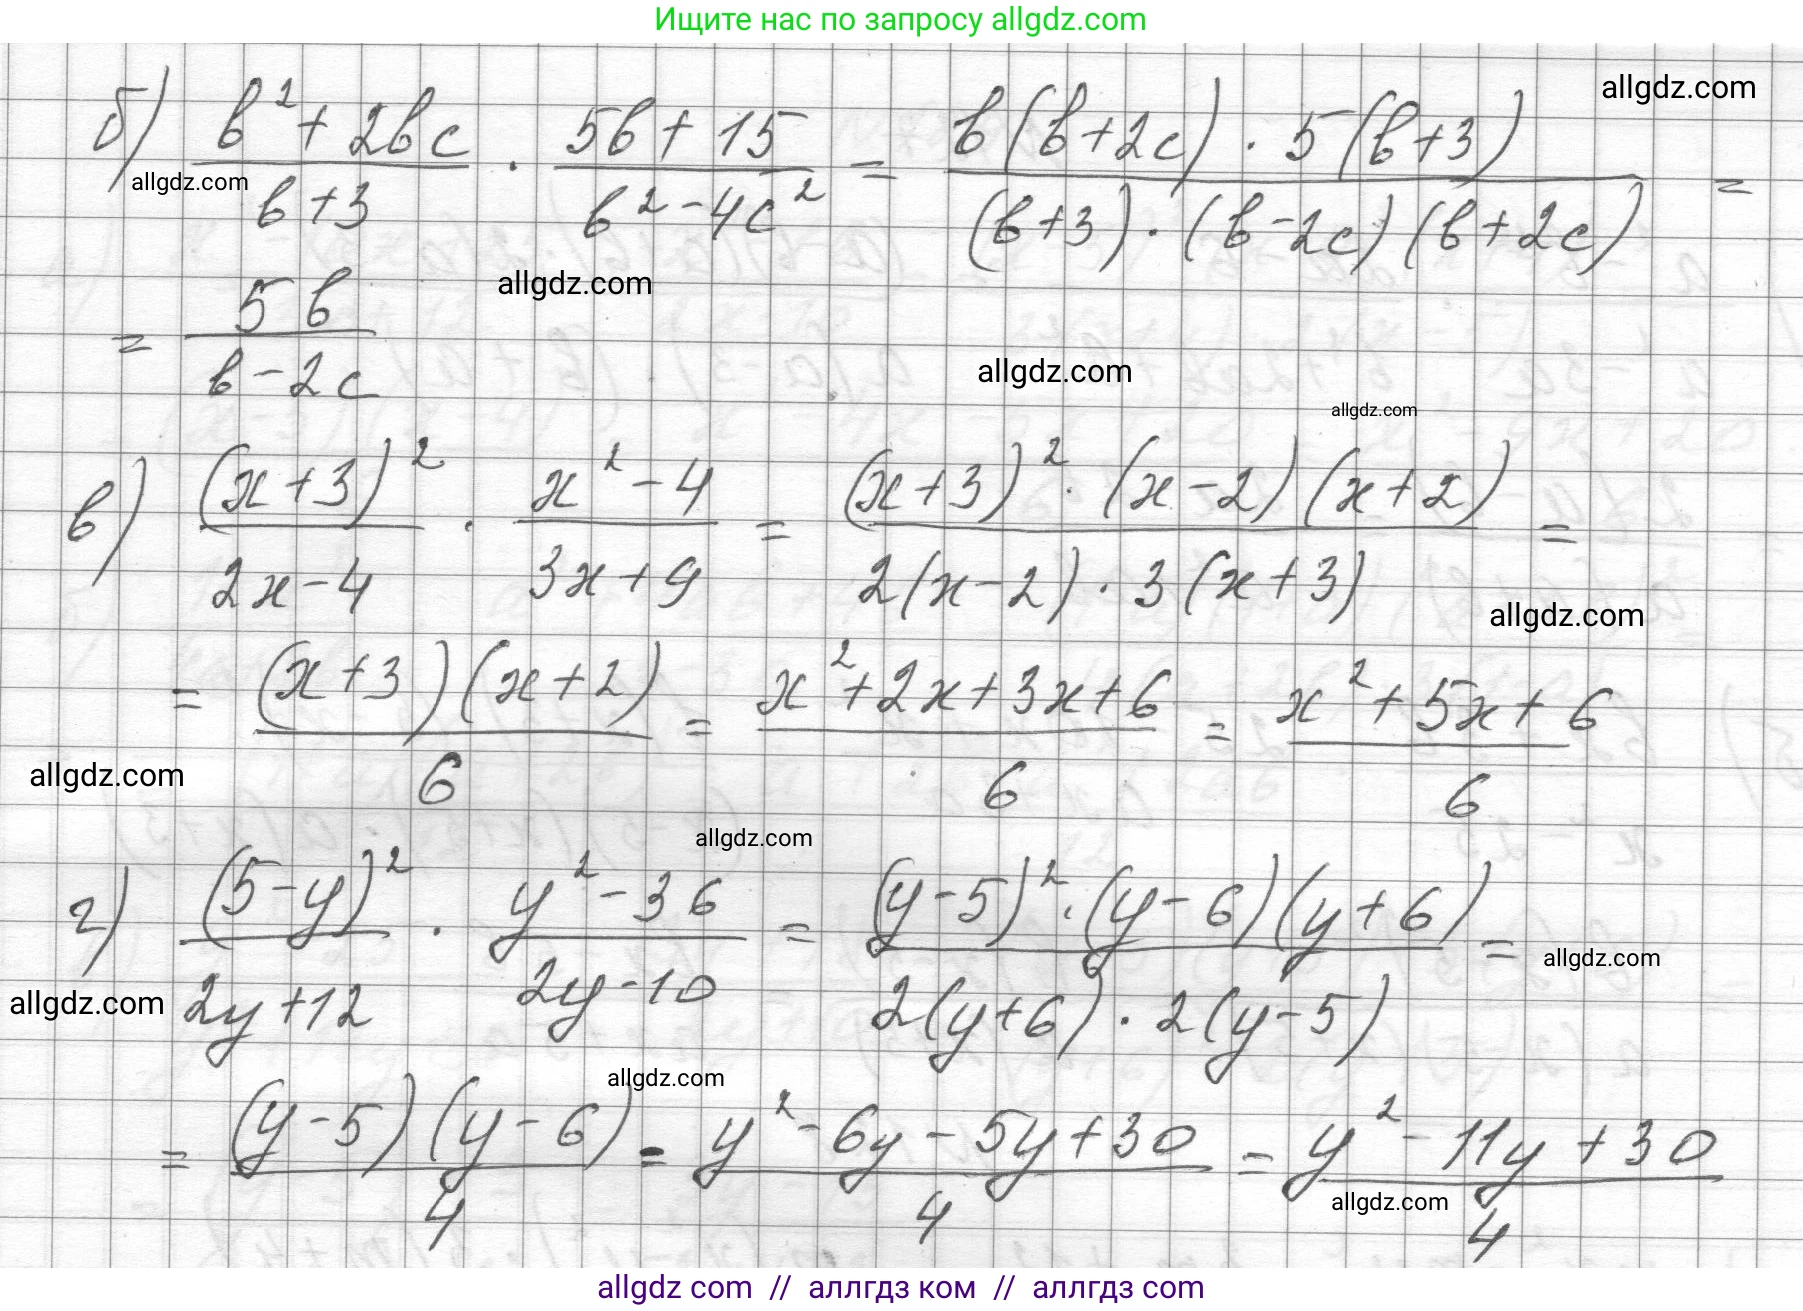 Ищите нас по запросу allgdz.com
allgdz.com
б) (b² + 2bc)/(b + 3) · (5b + 15)/(b² - 4c²) = (b(b + 2c) · 5(b + 3))/((b + 3) · (b - 2c)(b + 2c)) =
allgdz.com
= 5b/(b - 2c)
allgdz.com
allgdz.com
allgdz.com
в) (x + 3)²/(2x - 4) · (x² - 4)/(3x + 9) = ((x + 3)² · (x - 2)(x + 2))/(2(x - 2) · 3(x + 3)) =
allgdz.com
= ((x + 3)(x + 2))/6 = (x² + 2x + 3x + 6)/6 = (x² + 5x + 6)/6
allgdz.com
allgdz.com
г) (5 - y)²/(2y + 12) · (y² - 36)/(2y - 10) = ((y - 5)² · (y - 6)(y + 6))/(2(y + 6) · 2(y - 5)) =
allgdz.com
allgdz.com
allgdz.com
= ((y - 5)(y - 6))/4 = (y² - 6y - 5y + 30)/4 = (y² - 11y + 30)/4
allgdz.com
allgdz.com // аллгдз ком // аллгдз com